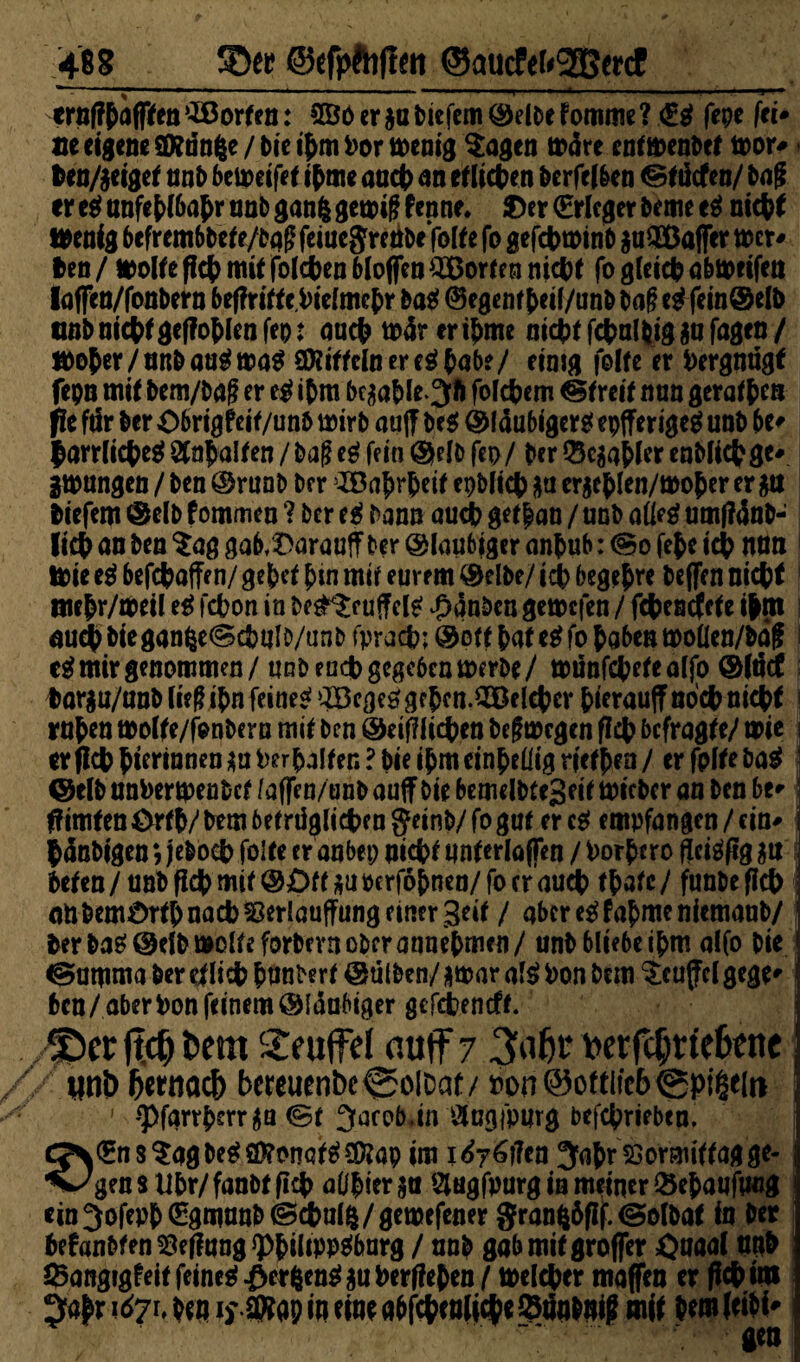 488 Der Gespenſten Gauckel-Werck
ernſthafften Worten: Wo er zu dieſem Gelde komme? Es ſeye ſei-
ne eigene Müntze / die ihm vor wenig Tagen wäre entwendet wor-
den/zeiget und beweiſet ihme auch an etlichen derſelben Stücken/ daß
er es unfehlbahr und gantz gewiß kenne. Der Erleger deme es nicht
wenig befrembdete/daß ſeine Freude ſolte ſo geſchwind zu Waſſer wer-
den / wolte ſich mit ſolchen bloſſen Worten nicht ſo gleich abweiſen
laſſen/ſondern beſtritte vielmehr das Gegentheil/und daß es ſein Geld
und nicht geſtohlen ſey: auch wär er ihme nicht ſchuldig zu ſagen /
woher / und aus was Mitteln er es habe / einig ſolte er vergnügt
ſeyn mit dem/daß er es ihm bezahle. Jn ſolchem Streit nun gerathen
ſie für der Obrigkeit/und wird auff des Gläubigers eyfferiges und be-
harrliches Anhalten / daß es ſein Geld ſey / der Bezahler endlich ge-
zwungen / den Grund der Wahrheit eydlich zu erzehlen/woher er zu
dieſem Geld kommen ? der es dann auch gethan / und alles umſtänd-
lich an den Tag gab. Darauff der Glaubiger anhub: So ſehe ich nun
wie es beſchaffen/ gehet hin mit eurem Gelde/ ich begehre deſſen nicht
mehr/weil es ſchon in des Teuffels Händen geweſen / ſchenckete ihm
auch die gantze Schuld/und ſprach: Gott hat es ſo haben wollen/daß
es mir genommen / und euch gegeben werde / wünſchete alſo Glück
darzu/und ließ ihn ſeines Weges gehen. Welcher hierauff noch nicht
ruhen wolte/ſondern mit den Geiſtlichen deßwegen ſich befragte/ wie
er ſich hierinnen zu verhalten ? die ihm einhellig riethen / er ſolte das
Geld unverwendet laſſen/und auff die bemeldte Zeit wieder an den be-
ſtimten Orth/ dem betrüglichen Feind/ ſo gut er es empfangen / ein-
händigen ; jedoch ſolte er anbey nicht unterlaſſen / vorhero fleiſſig zu
beten / und ſich mit GOtt zu verſöhnen/ ſo er auch thate / funde ſich
an dem Orth nach Verlauffung einer Zeit / aber es kahme niemand/
der das Geld wolte fordern oder annehmen / und bliebe ihm alſo die
Summa der etlich hundert Gülden/ zwar als von dem Teuffel gege-
ben / aber von ſeinem Gläubiger geſchenckt.
Der ſich dem Teuffel auff 7 Jahr verſchriebene
und hernach bereuende Soldat / von Gottlieb Spitzeln
Pfarrherr zu St Jacob in Augſpurg beſchrieben.
DEn 8 Tag des Monats May im 1676ſten Jahr Vormittag ge-
gen 8 Uhr/ fandt ſich allhier zu Augſpurg in meiner Behauſung
ein Joſeph Egmund Schultz / geweſener Frantzöſiſ. Soldat in der
bekandten Veſtung Philippsburg / und gab mit groſſer Quaal und
Bangigkeit ſeines Hertzens zu verſtehen / welcher maſſen er ſich im
Jahr 1671. den 15. May in eine abſcheuliche Bündniß mit dem leidi-
gen